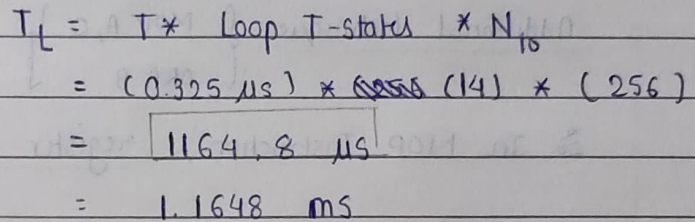 T_L = T* Loop T-states * N_10
= (0.325 μs) * (14) * (256)
= 1164.8 μs
= 1.1648 ms